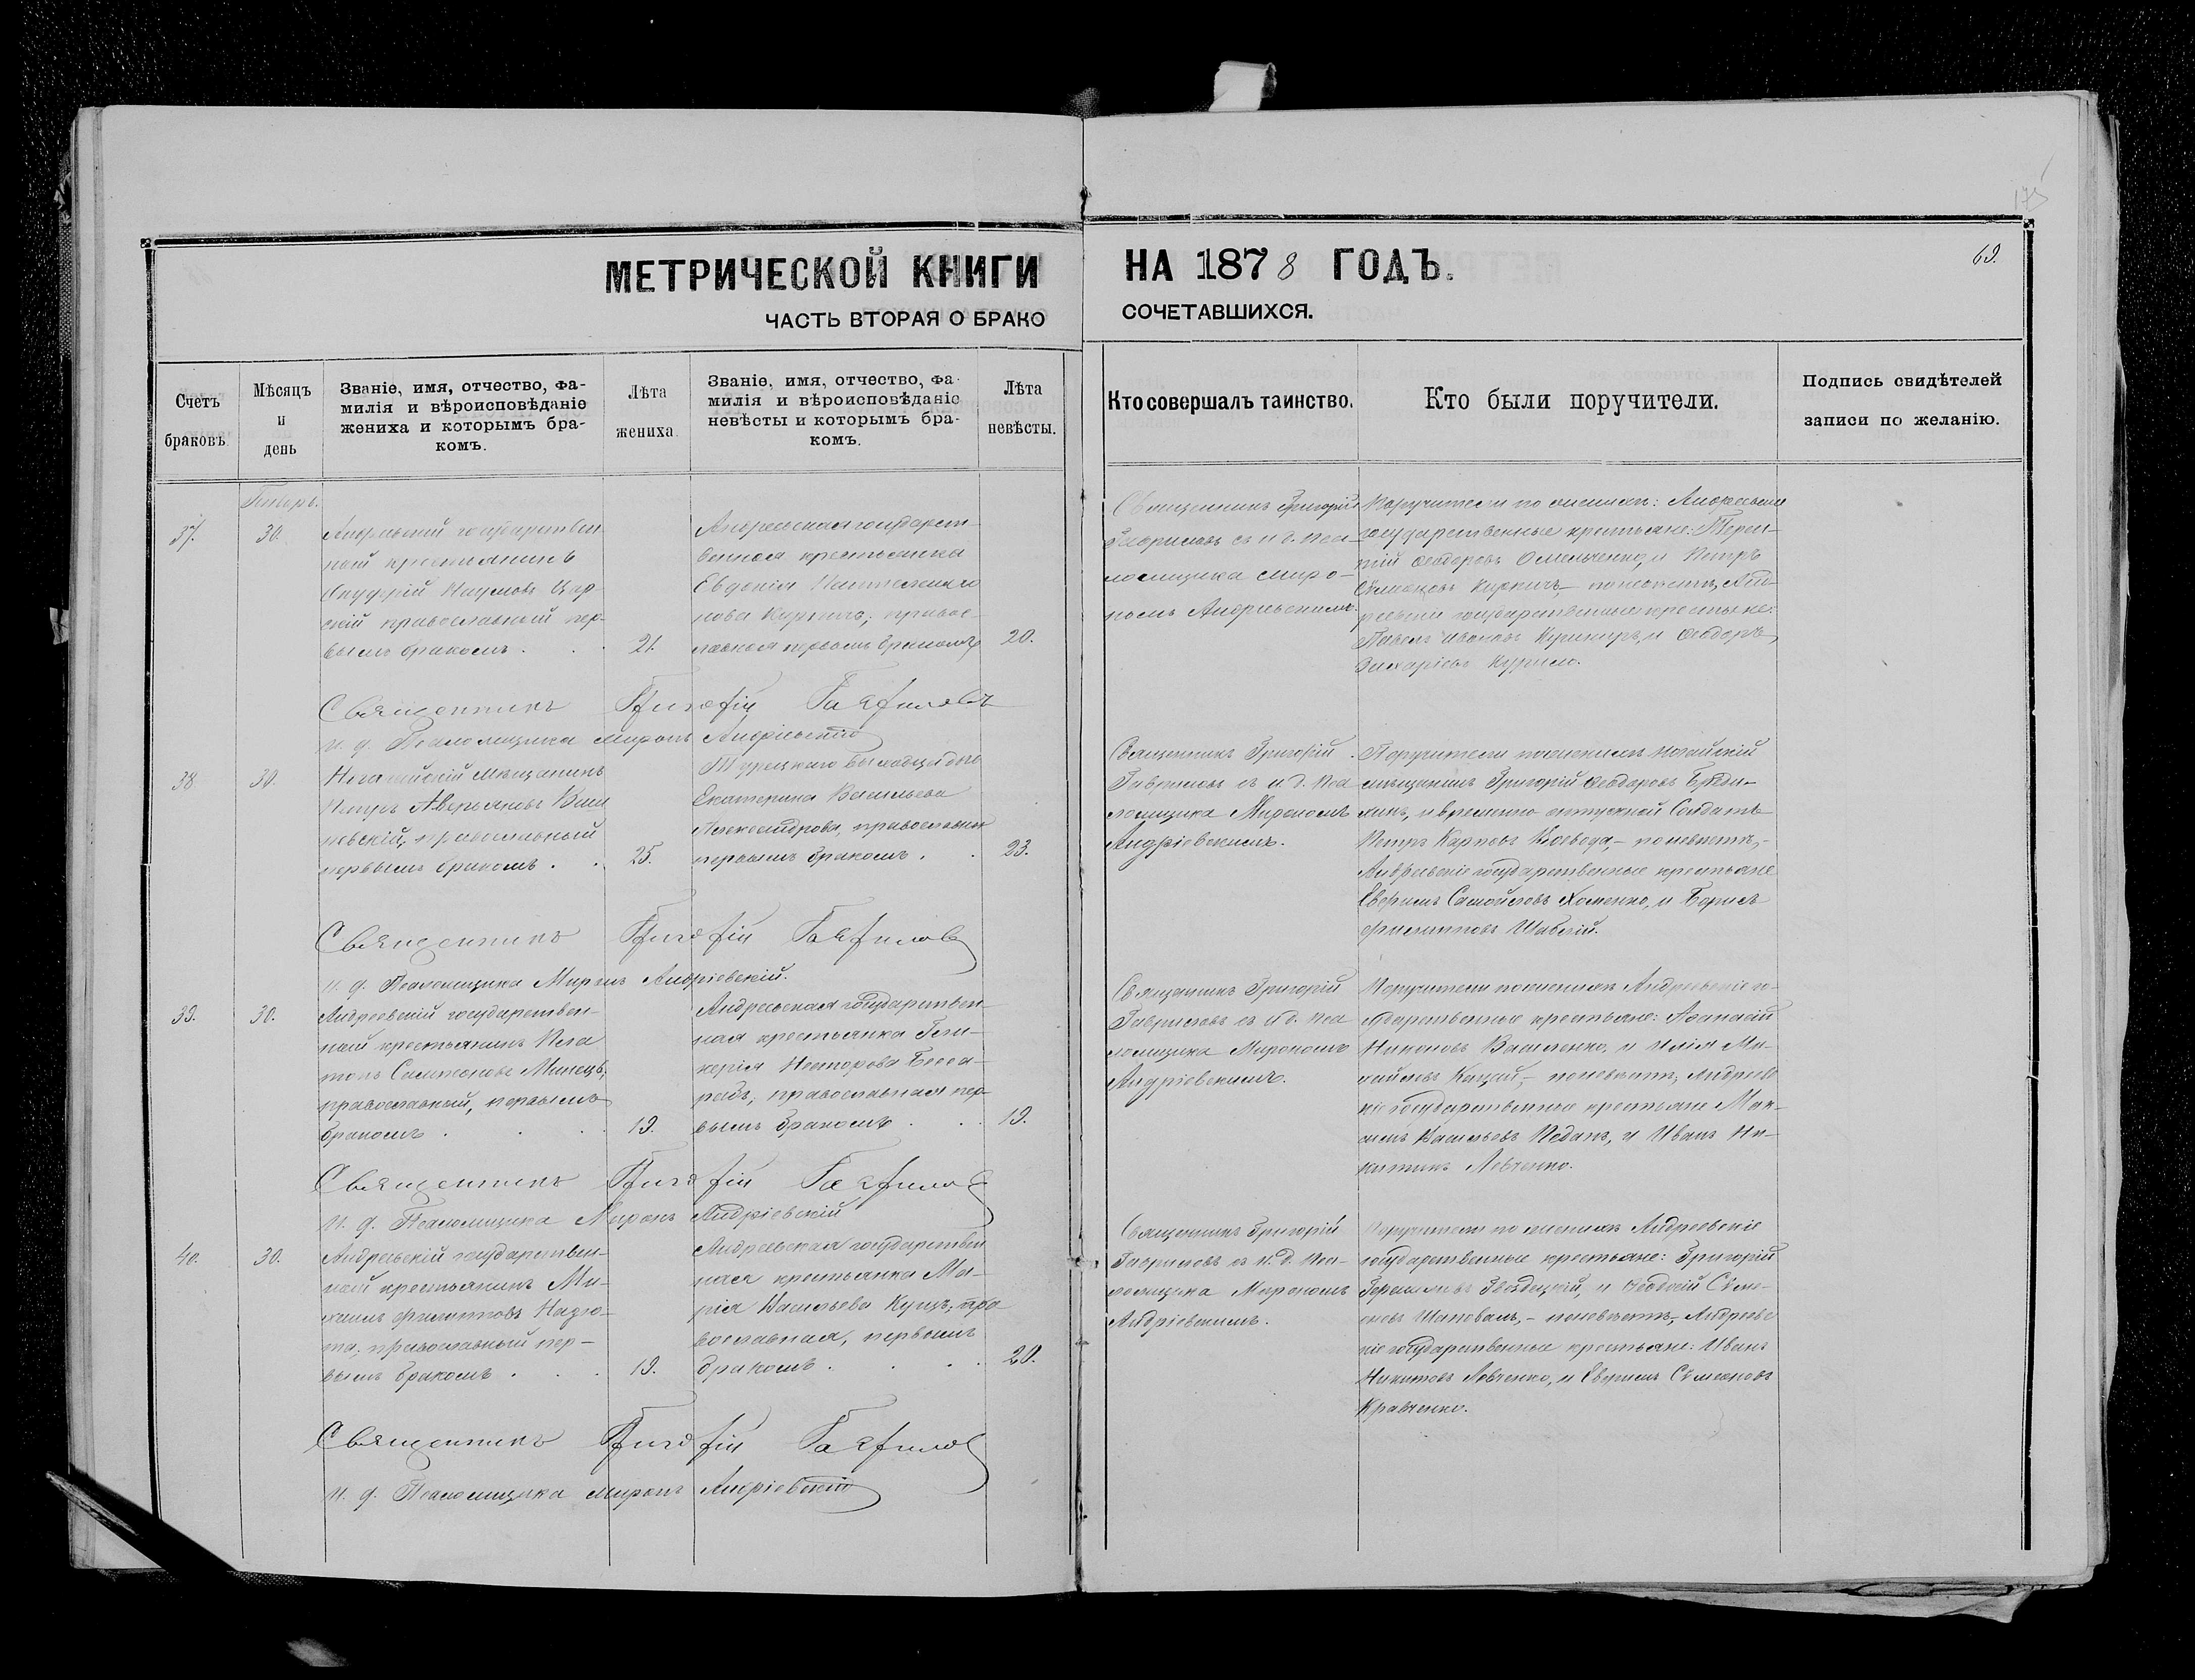 175
69.
МЕТРИЧЕСКОЙ КНИГИ НА 1878 ГОДЪ.
ЧАСТЬ ВТОРАЯ О БРАКОСОЧЕТАВШИХСЯ.
Счетъ браковъ
Мѣсяцъ и день
Званіе, имя, отчество, фа-
милія и вѣроисповѣданіе
жениха и которымъ бра-
комъ.
Лѣта жениха
Званіе, имя, отчество, фа-
милія и вѣроисповѣданіе
невѣсты и которымъ бра-
комъ.
Лѣта невѣсты.
Кто совершалъ таинство.
Кто были поручители.
Подпись свидѣтелей
записи по желанію.
Январь.
37.
30.
Андреевскій государствен
ный крестьянинъ
Наумовъ
православный пер-
вымъ бракомъ
21.
Андреевская государст-
венная крестьянка
Евдокія Пантелеимо
нова Курпичъ; правос-
лавная первымъ бракомъ
20.
Священникъ Григорій
Гавриловъ съ и. д. Пса-
ломщика Миро-
номъ Андріевскимъ.
Поручители по женихѣ: Андреевскіе
государственные крестьяне: Терен-
тій Ѳедоровъ Омельченко, и Петръ
Симоновъ Курпичъ, по невѣстѣ, Анд-
реевскіе государственные крестьяне:
Павелъ Ивановъ и Ѳедоръ
Захаріевъ Курило.
Священникъ Григорій Гавриловъ
и. д. Псаломщика Миронъ Андріевскій
38
30.
Ногайскій мѣщанинъ
Петръ Аверьяновъ Виш
невскій, православный
первымъ бракомъ
25.
Турецкаго выходца дочь
Екатерина Васильева
Александрова, православная
первымъ бракомъ
23.
Священникъ Григорій
Гавриловъ съ и. д. Пса
ломщика Мирономъ
Андріевскимъ.
Поручители по женихѣ Ногайскій
мѣщанинъ Григорій Ѳедоровъ
и временно отпускной Солдатъ
Петръ Карповъ Воевода, - по невѣстѣ, -
Андреевскіе государственные крестьяне
Ефремъ Самойловъ Хоменко, и Борисъ
Филипповъ Шабскій.
Священникъ Григорій Гавриловъ
и. д. Псаломщика Миронъ Андріевскій.
39.
30.
Андреевскій государствен-
ный крестьянинъ Пла
тонъ Семеновъ Минецъ,
православный, первымъ
бракомъ
19.
Андреевская государствен-
ная крестьянка Гли-
керія Несторова Бесса-
рабъ, православная пер-
вымъ бракомъ
19.
Священникъ Григорій
Гавриловъ съ и. д. Пса
ломщика Мирономъ
Андріевскимъ.
Поручители по женихѣ Андреевскіе го-
сударственные крестьяне: Аѳанасій
Никоновъ Василенко, и Илія Ми-
хайловъ Кацай, - по невѣстѣ, Андреевс
кіе государственные крестьяне Мак-
симъ Васильевъ и Иванъ Ни-
китинъ Левченко.
Священникъ Григорій Гавриловъ
и. д. Псаломщика Миронъ Андріевскій
40.
30.
Андреевскій государствен-
ный крестьянинъ Ми-
хаилъ Филипповъ Надто-
та, православный пер-
вымъ бракомъ
19.
Андреевская государствен
ная крестьянка Ма-
рія Васильева Куцъ, пра
вославная, первымъ
бракомъ
20.
Священникъ Григорій
Гавриловъ съ и. д. Пса-
ломщика Мирономъ
Андріевскимъ.
Поручители по женихѣ Андреевскіе
государственные крестьяне: Григорій
Герасимовъ Ѳеодосій Семе-
новъ Шаповалъ, - по невѣстѣ, Андреевс
кіе государственные крестьяне: Иванъ
Никитовъ Левченко, и Ефремъ Симеоновъ
Кравченко.
Священникъ Григорій Гавриловъ
и. д. Псаломщика Миронъ Андріевскій